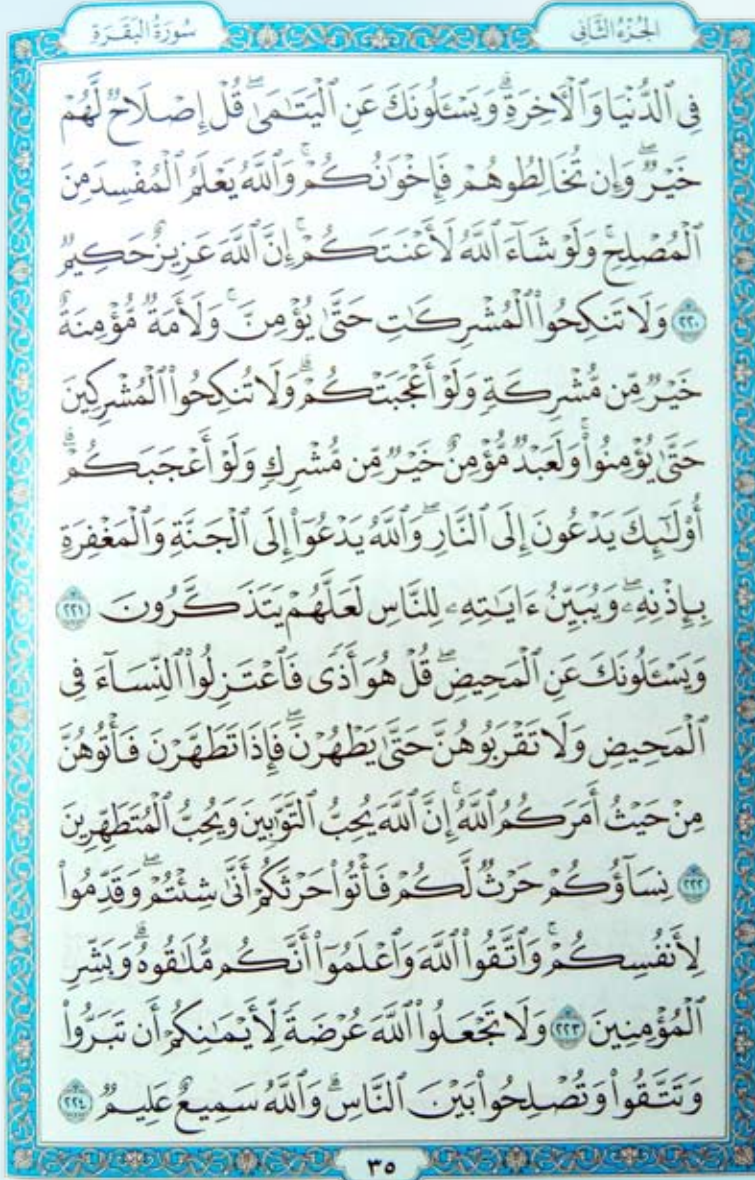 الجُزْءُ الثَّانِى
سُورَةُ البَقَرَةِ
فِى ٱلدُّنْيَا وَٱلْأَخِرَةِۗ وَيَسْـَٔلُونَكَ عَنِ ٱلْيَتَـٰمَىٰۖ قُلْ إِصْلَاحٌ لَّهُمْ
خَيْرٌۖ وَإِن تُخَالِطُوهُمْ فَإِخْوَٰنُكُمْۚ وَٱللَّهُ يَعْلَمُ ٱلْمُفْسِدَ مِنَ
ٱلْمُصْلِحِۚ وَلَوْ شَآءَ ٱللَّهُ لَأَعْنَتَكُمْۚ إِنَّ ٱللَّهَ عَزِيزٌ حَكِيمٌ
٢٢٠ وَلَا تَنكِحُوا۟ ٱلْمُشْرِكَـٰتِ حَتَّىٰ يُؤْمِنَّۚ وَلَأَمَةٌ مُّؤْمِنَةٌ
خَيْرٌ مِّن مُّشْرِكَةٍ وَلَوْ أَعْجَبَتْكُمْۗ وَلَا تُنكِحُوا۟ ٱلْمُشْرِكِينَ
حَتَّىٰ يُؤْمِنُوا۟ۚ وَلَعَبْدٌ مُّؤْمِنٌ خَيْرٌ مِّن مُّشْرِكٍ وَلَوْ أَعْجَبَكُمْۗ
أُو۟لَـٰٓئِكَ يَدْعُونَ إِلَى ٱلنَّارِۖ وَٱللَّهُ يَدْعُوٓا۟ إِلَى ٱلْجَنَّةِ وَٱلْمَغْفِرَةِ
بِإِذْنِهِۦۖ وَيُبَيِّنُ ءَايَـٰتِهِۦ لِلنَّاسِ لَعَلَّهُمْ يَتَذَكَّرُونَ ٢٢١
وَيَسْـَٔلُونَكَ عَنِ ٱلْمَحِيضِۖ قُلْ هُوَ أَذًى فَٱعْتَزِلُوا۟ ٱلنِّسَآءَ فِى
ٱلْمَحِيضِ وَلَا تَقْرَبُوهُنَّ حَتَّىٰ يَطْهُرْنَۖ فَإِذَا تَطَهَّرْنَ فَأْتُوهُنَّ
مِنْ حَيْثُ أَمَرَكُمُ ٱللَّهُۚ إِنَّ ٱللَّهَ يُحِبُّ ٱلتَّوَّٰبِينَ وَيُحِبُّ ٱلْمُتَطَهِّرِينَ
٢٢٢ نِسَآؤُكُمْ حَرْثٌ لَّكُمْ فَأْتُوا۟ حَرْثَكُمْ أَنَّىٰ شِئْتُمْۖ وَقَدِّمُوا۟
لِأَنفُسِكُمْۚ وَٱتَّقُوا۟ ٱللَّهَ وَٱعْلَمُوٓا۟ أَنَّكُم مُّلَـٰقُوهُۗ وَبَشِّرِ
ٱلْمُؤْمِنِينَ ٢٢٣ وَلَا تَجْعَلُوا۟ ٱللَّهَ عُرْضَةً لِّأَيْمَـٰنِكُمْ أَن تَبَرُّوا۟
وَتَتَّقُوا۟ وَتُصْلِحُوا۟ بَيْنَ ٱلنَّاسِۗ وَٱللَّهُ سَمِيعٌ عَلِيمٌ ٢٢٤
٣٥